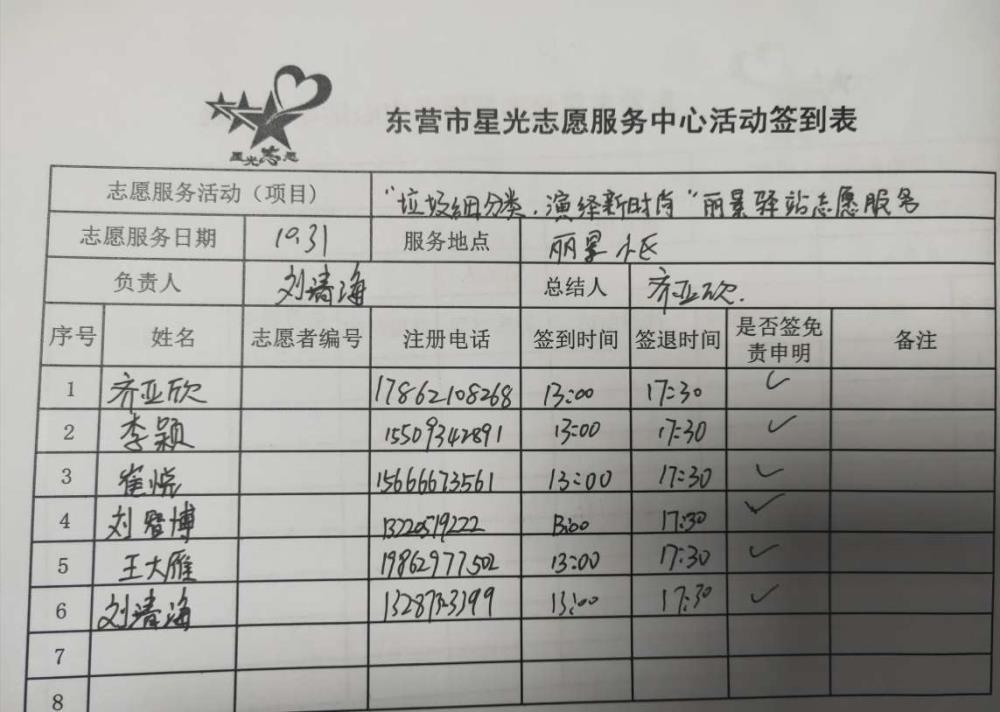 星光志愿
东营市星光志愿服务中心活动签到表
志愿服务活动（项目） “垃圾细分类，演绎新时尚”丽景驿站志愿服务
志愿服务日期 10.31 服务地点 丽景小区
负责人 刘清海 总结人 齐亚欣.
序号 姓名 志愿者编号 注册电话 签到时间 签退时间 是否签免责申明 备注
1 齐亚欣 17862108268 13:00 17:30 ✓
2 李颖 15509342891 13:00 17:30 ✓
3 崔悦 15666673561 13:00 17:30 ✓
4 刘登博 13220519222 13:00 17:30 ✓
5 王大雁 19862977502 13:00 17:30 ✓
6 刘清海 13:00 17:30 ✓
7
8